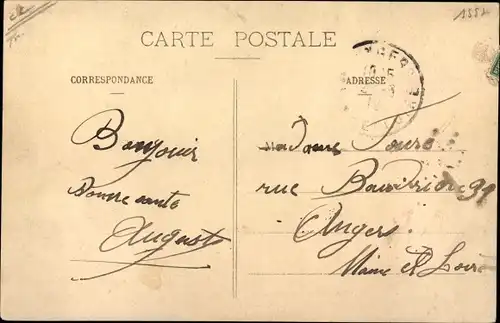 1551
CARTE POSTALE
CORRESPONDANCE
ADRESSE
Bonjour
Bonne santé
Auguste
Madame Touré
rue Baudrière 99
Angers
Maine et Loire